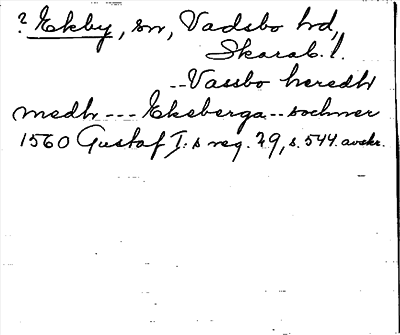 ? Ekby, sn, Vadsbo hd,
Skarab. l.
-- Vassbo heredh
medh --- Ekeberga -- sochner
1560 Gustaf I:s reg. 29, s. 544. avskr.